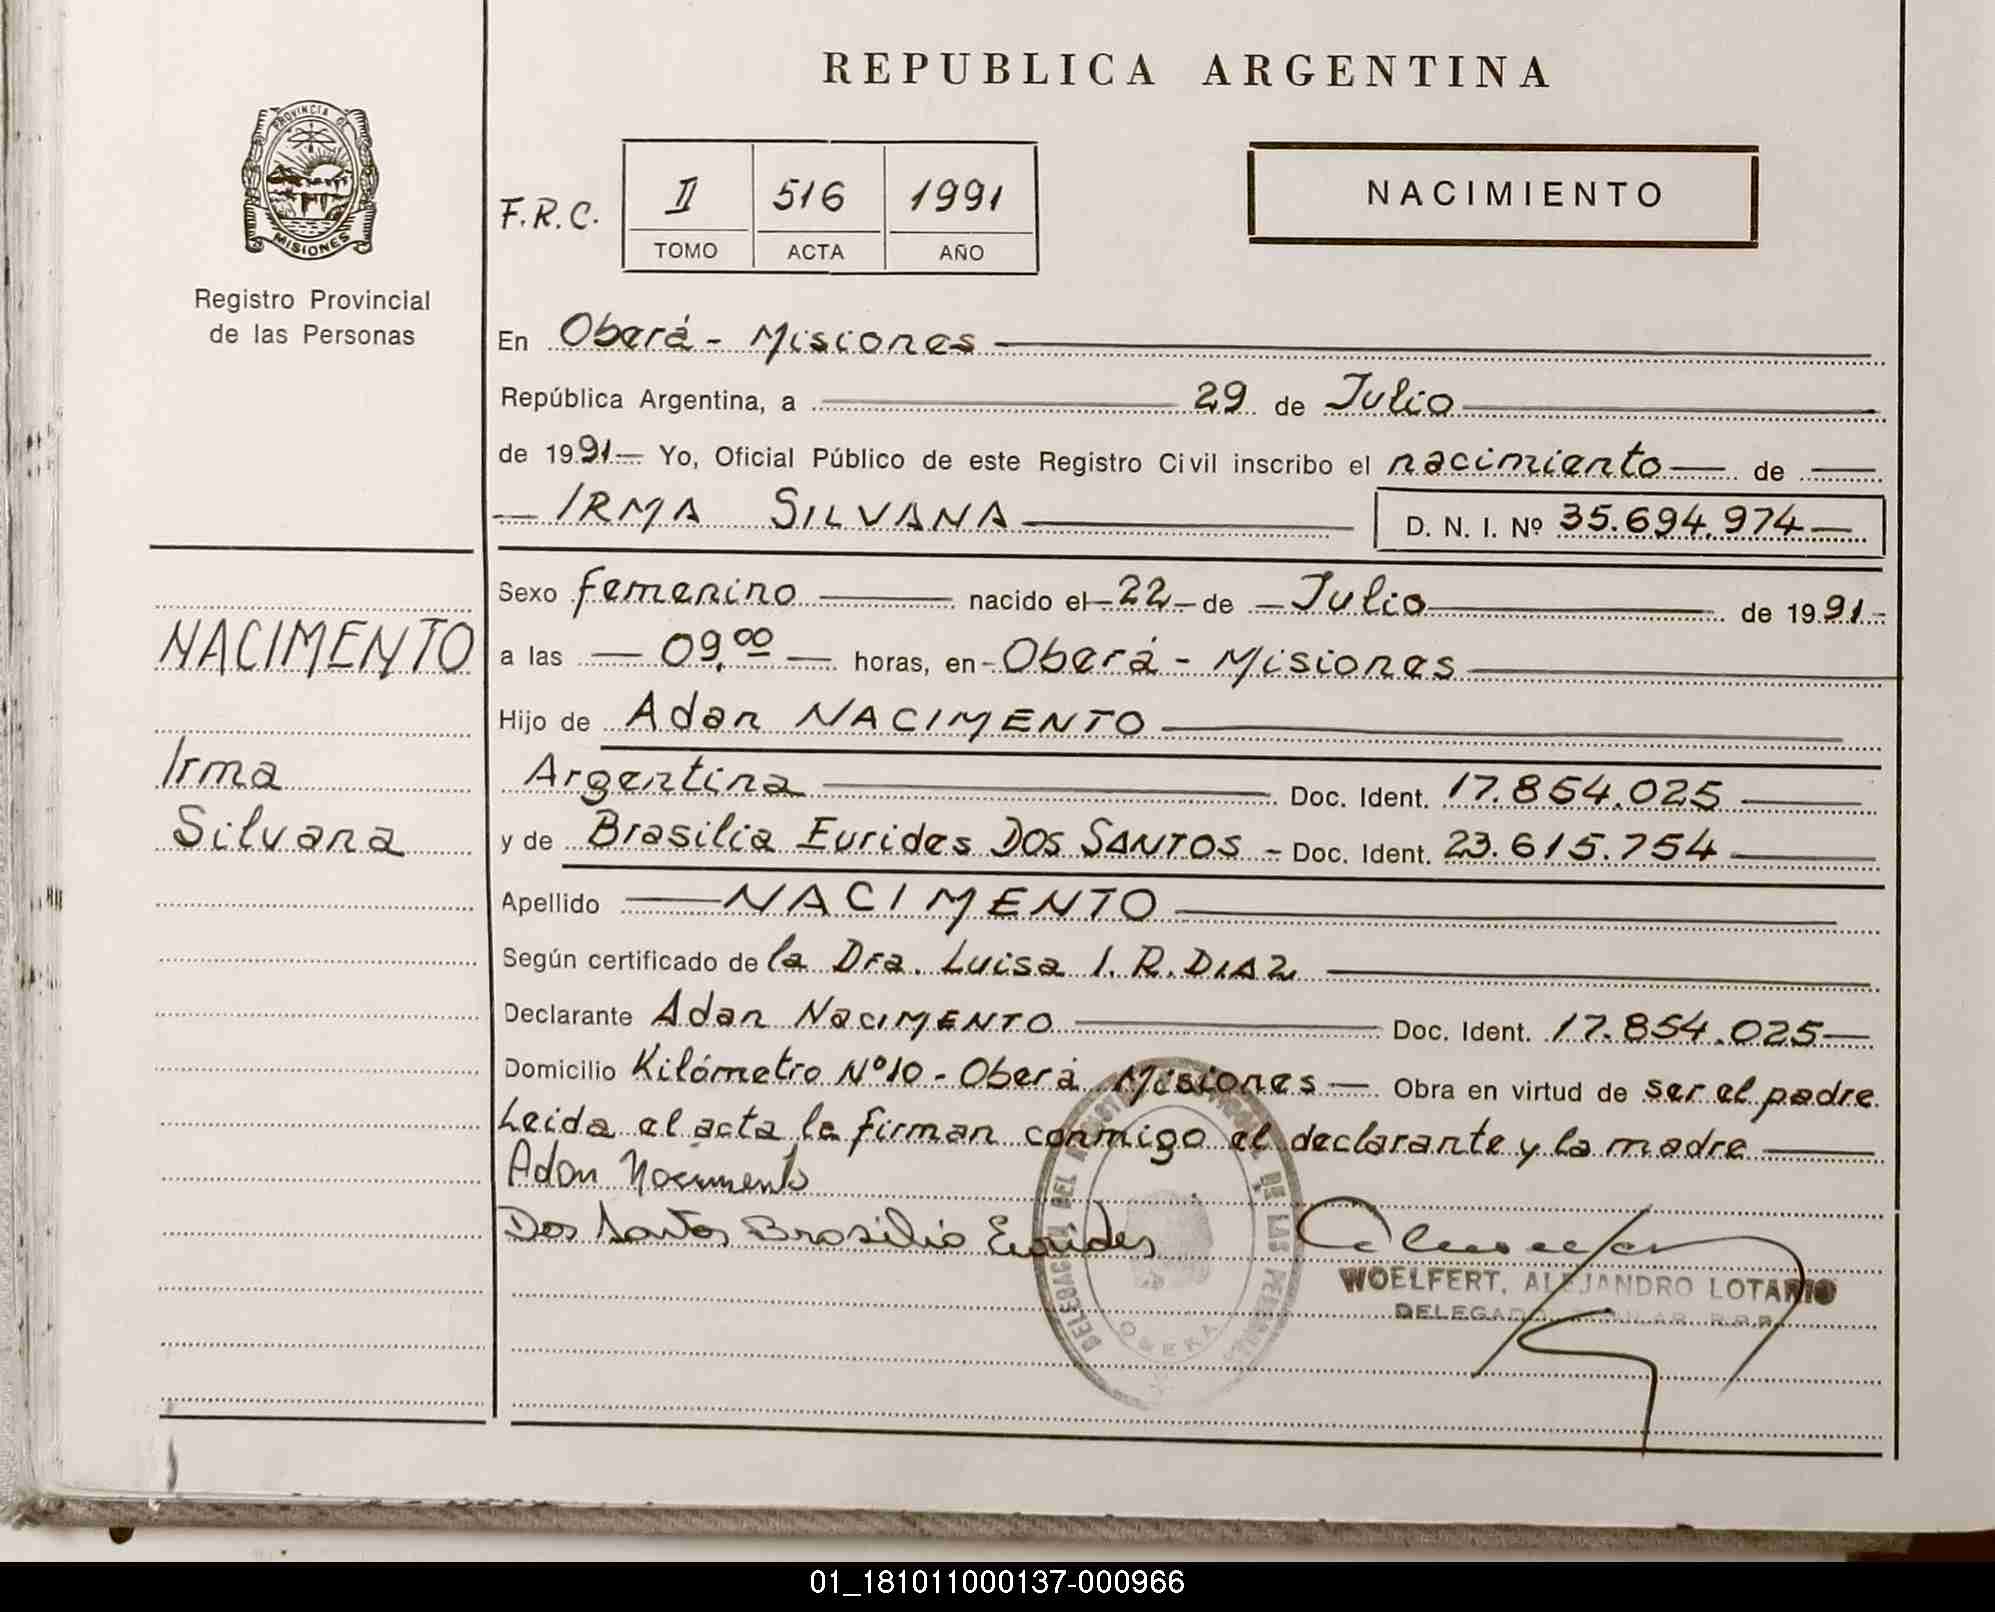 REPUBLICA ARGENTINA
PROVINCIA DE
MISIONES
Registro Provincial
de las Personas
F.R.C.
II 516 1991
TOMO ACTA AÑO
NACIMIENTO
En Oberá - Misiones
República Argentina, a 29 de Julio
de 1991 Yo, Oficial Público de este Registro Civil inscribo el nacimiento de
IRMA SILVANA D. N. I. Nº 35.694.974
Sexo femenino nacido el 22 de Julio de 1991
a las 09,00 horas, en Oberá - Misiones
Hijo de Adan NACIMENTO
Argentina Doc. Ident. 17.854.025
y de Brasilia Eurides DOS SANTOS - Doc. Ident. 23.615.754
Apellido NACIMENTO
Según certificado de la Dra. Luisa I. R. DIAZ
Declarante Adan NACIMENTO Doc. Ident. 17.854.025
Domicilio Kilómetro Nº 10 - Oberá Misiones Obra en virtud de ser el padre
Leida el acta la firman conmigo el declarante y la madre
Adan Nacimento
Dos Santos Brasilia Eurides
NACIMENTO
Irma
Silvana
DELEGACION DEL DE LAS
OBERA
WOELFERT, ALEJANDRO LOTARIO
DELEGADO TITULAR R.P.P.
01_181011000137-000966